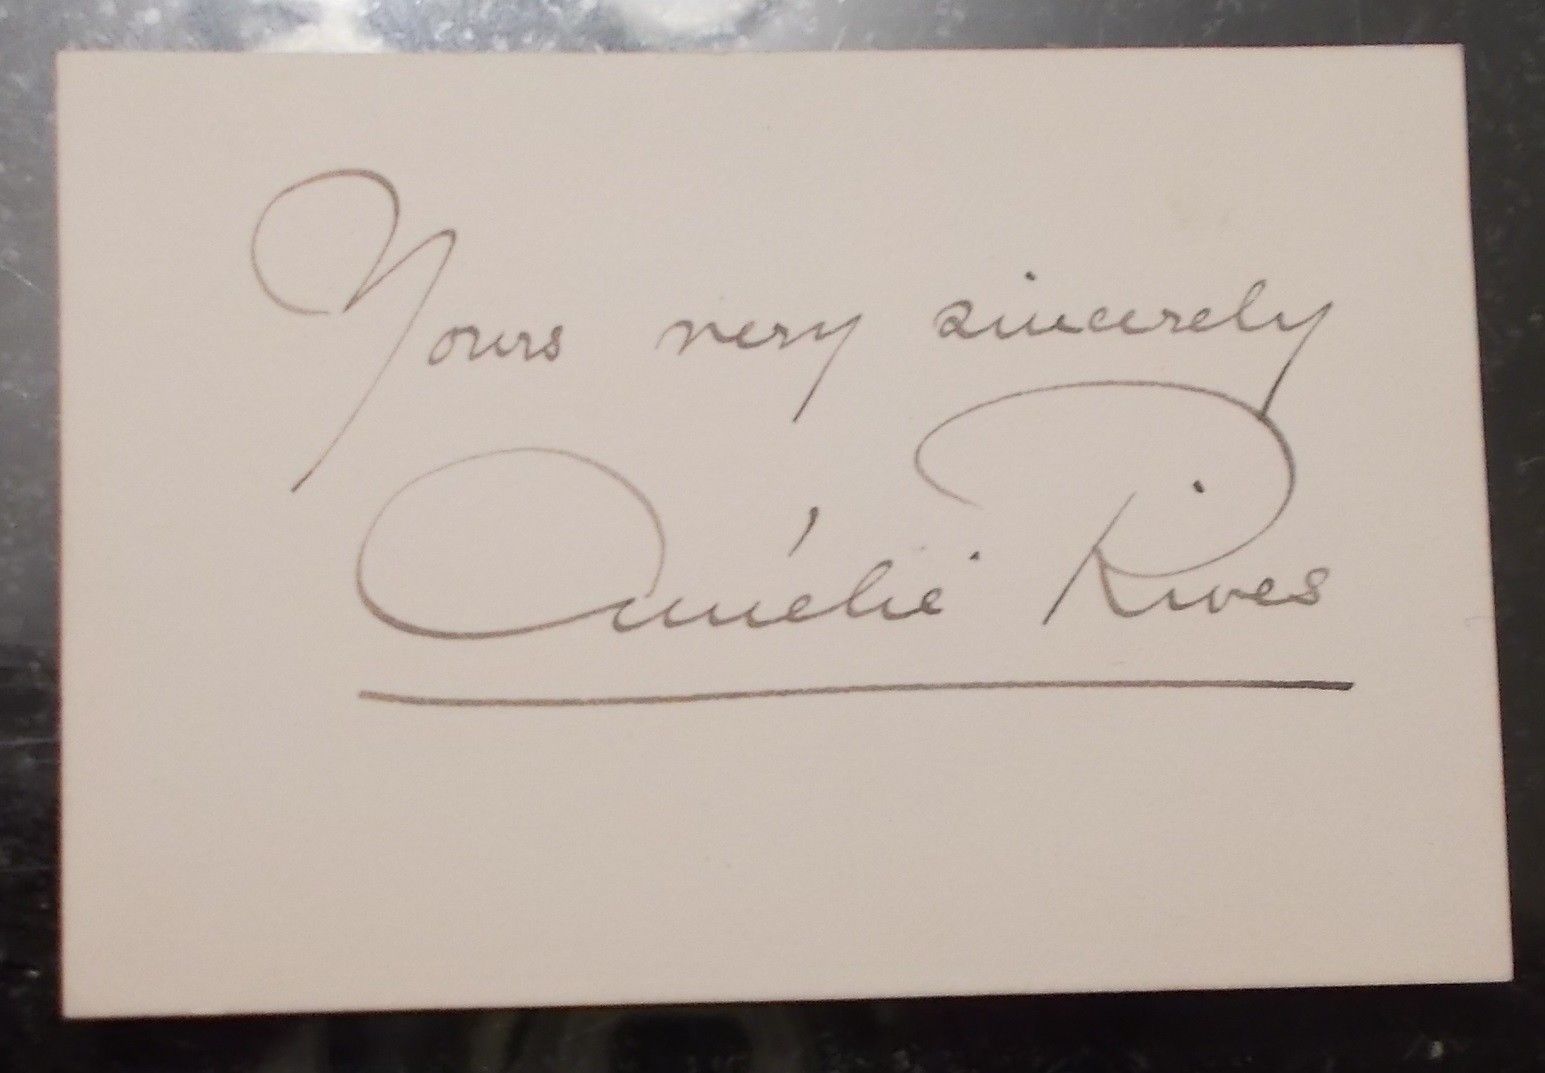 Yours very sincerely
Amélie Rives